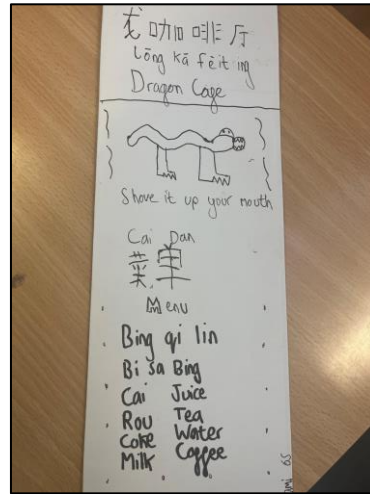 龙咖啡厅
Lōng kā fēit ing
Dragon Cage
Shove it up your mouth
Cai Dan
菜单
Menu
Bing qi lin
Bi Sa Bing
Cai Juice
Rou Tea
Coke Water
Milk Coggee